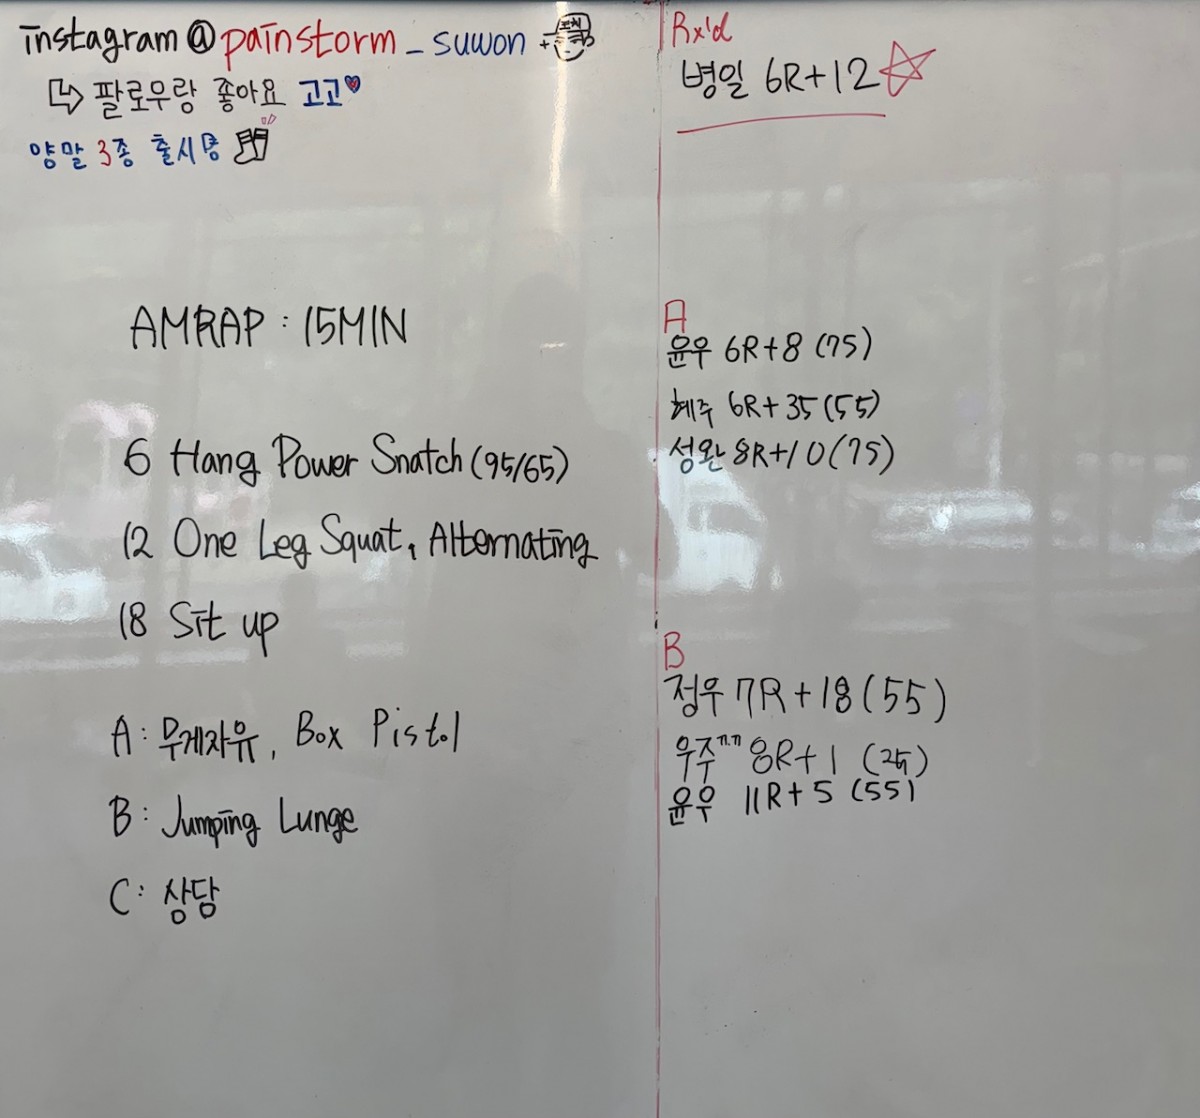 instagram@painstorm_suwon +
팔로우랑 좋아요 고고
양말 3종 출시용
AMRAP : 15MIN
6 Hang Power Snatch (95/65)
12 One Leg Squat, Alternating
18 Sit up
A : 무게자유, Box Pistol
B : Jumping Lunge
C : 상담
Rx'd
병일 6R+12
A
윤우 6R+8 (75)
혜주 6R+35 (55)
성완 8R+10 (75)
B
정우 7R+18 (55)
우주 8R+1
윤우 11R+5 (55)